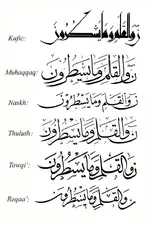 Kufic: ن والقلم وما يسطرون
Muhaqqaq: ن والقلم وما يسطرون
Naskh: ن والقلم وما يسطرون
Thuluth: ن والقلم وما يسطرون
Towqi': ن والقلم وما يسطرون
Reqaa': ن والقلم وما يسطرون